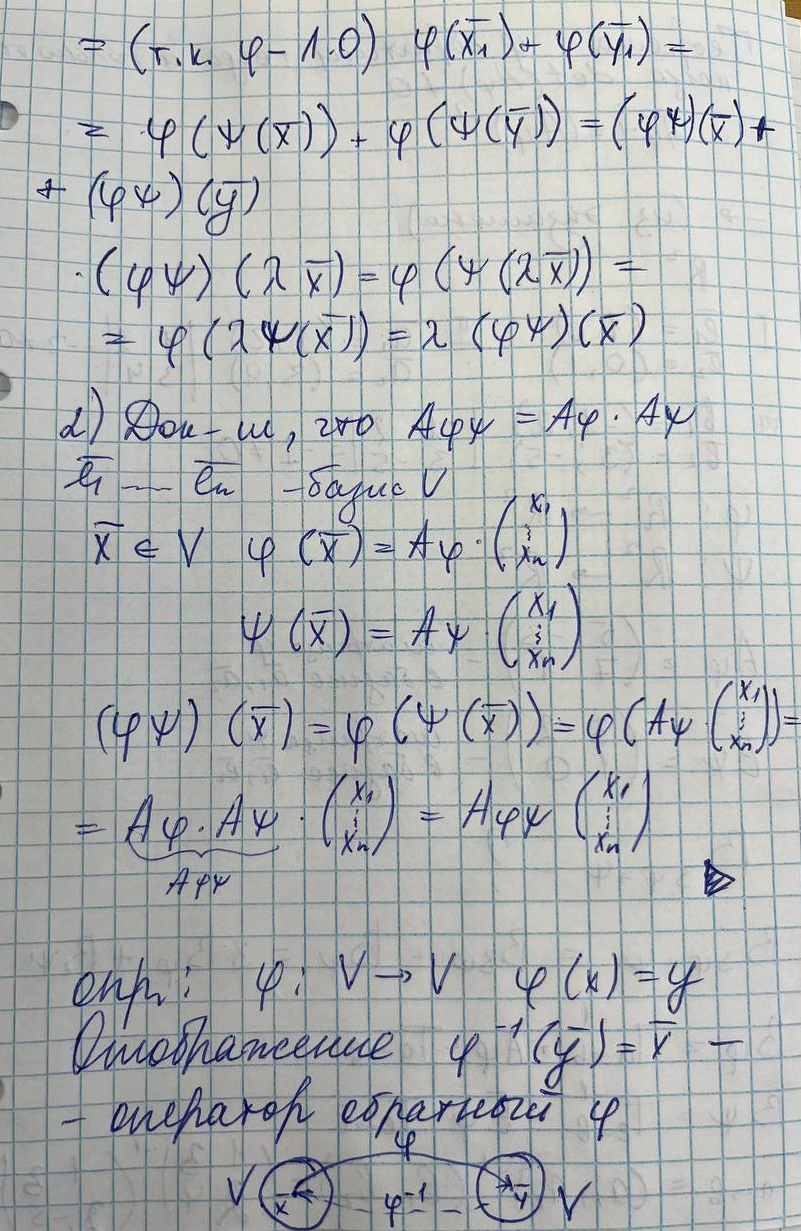 = (т.к. φ - Л.О) φ(x̄₁) + φ(ȳ₁) =
= φ(ψ(x̄)) + φ(ψ(ȳ)) = (φψ)(x̄) +
+ (φψ)(ȳ)
·(φψ)(λx̄) = φ(ψ(λx̄)) =
= φ(λψ(x̄)) = λ(φψ)(x̄)
2) Док-м, что Aφψ = Aφ · Aψ
ē₁ ... ēₙ - базис V
x̄ ∈ V φ(x̄) = Aφ · (x₁ ⋮ xₙ)
ψ(x̄) = Aψ · (x₁ ⋮ xₙ)
(φψ)(x̄) = φ(ψ(x̄)) = φ(Aψ (x₁ ⋮ xₙ)) =
= Aφ · Aψ · (x₁ ⋮ xₙ) = Aφψ (x₁ ⋮ xₙ)
Aφψ
опр.: φ: V → V φ(x) = y
Отображение φ⁻¹(ȳ) = x̄ -
- оператор обратный φ
φ
V x̄ φ⁻¹ ȳ V